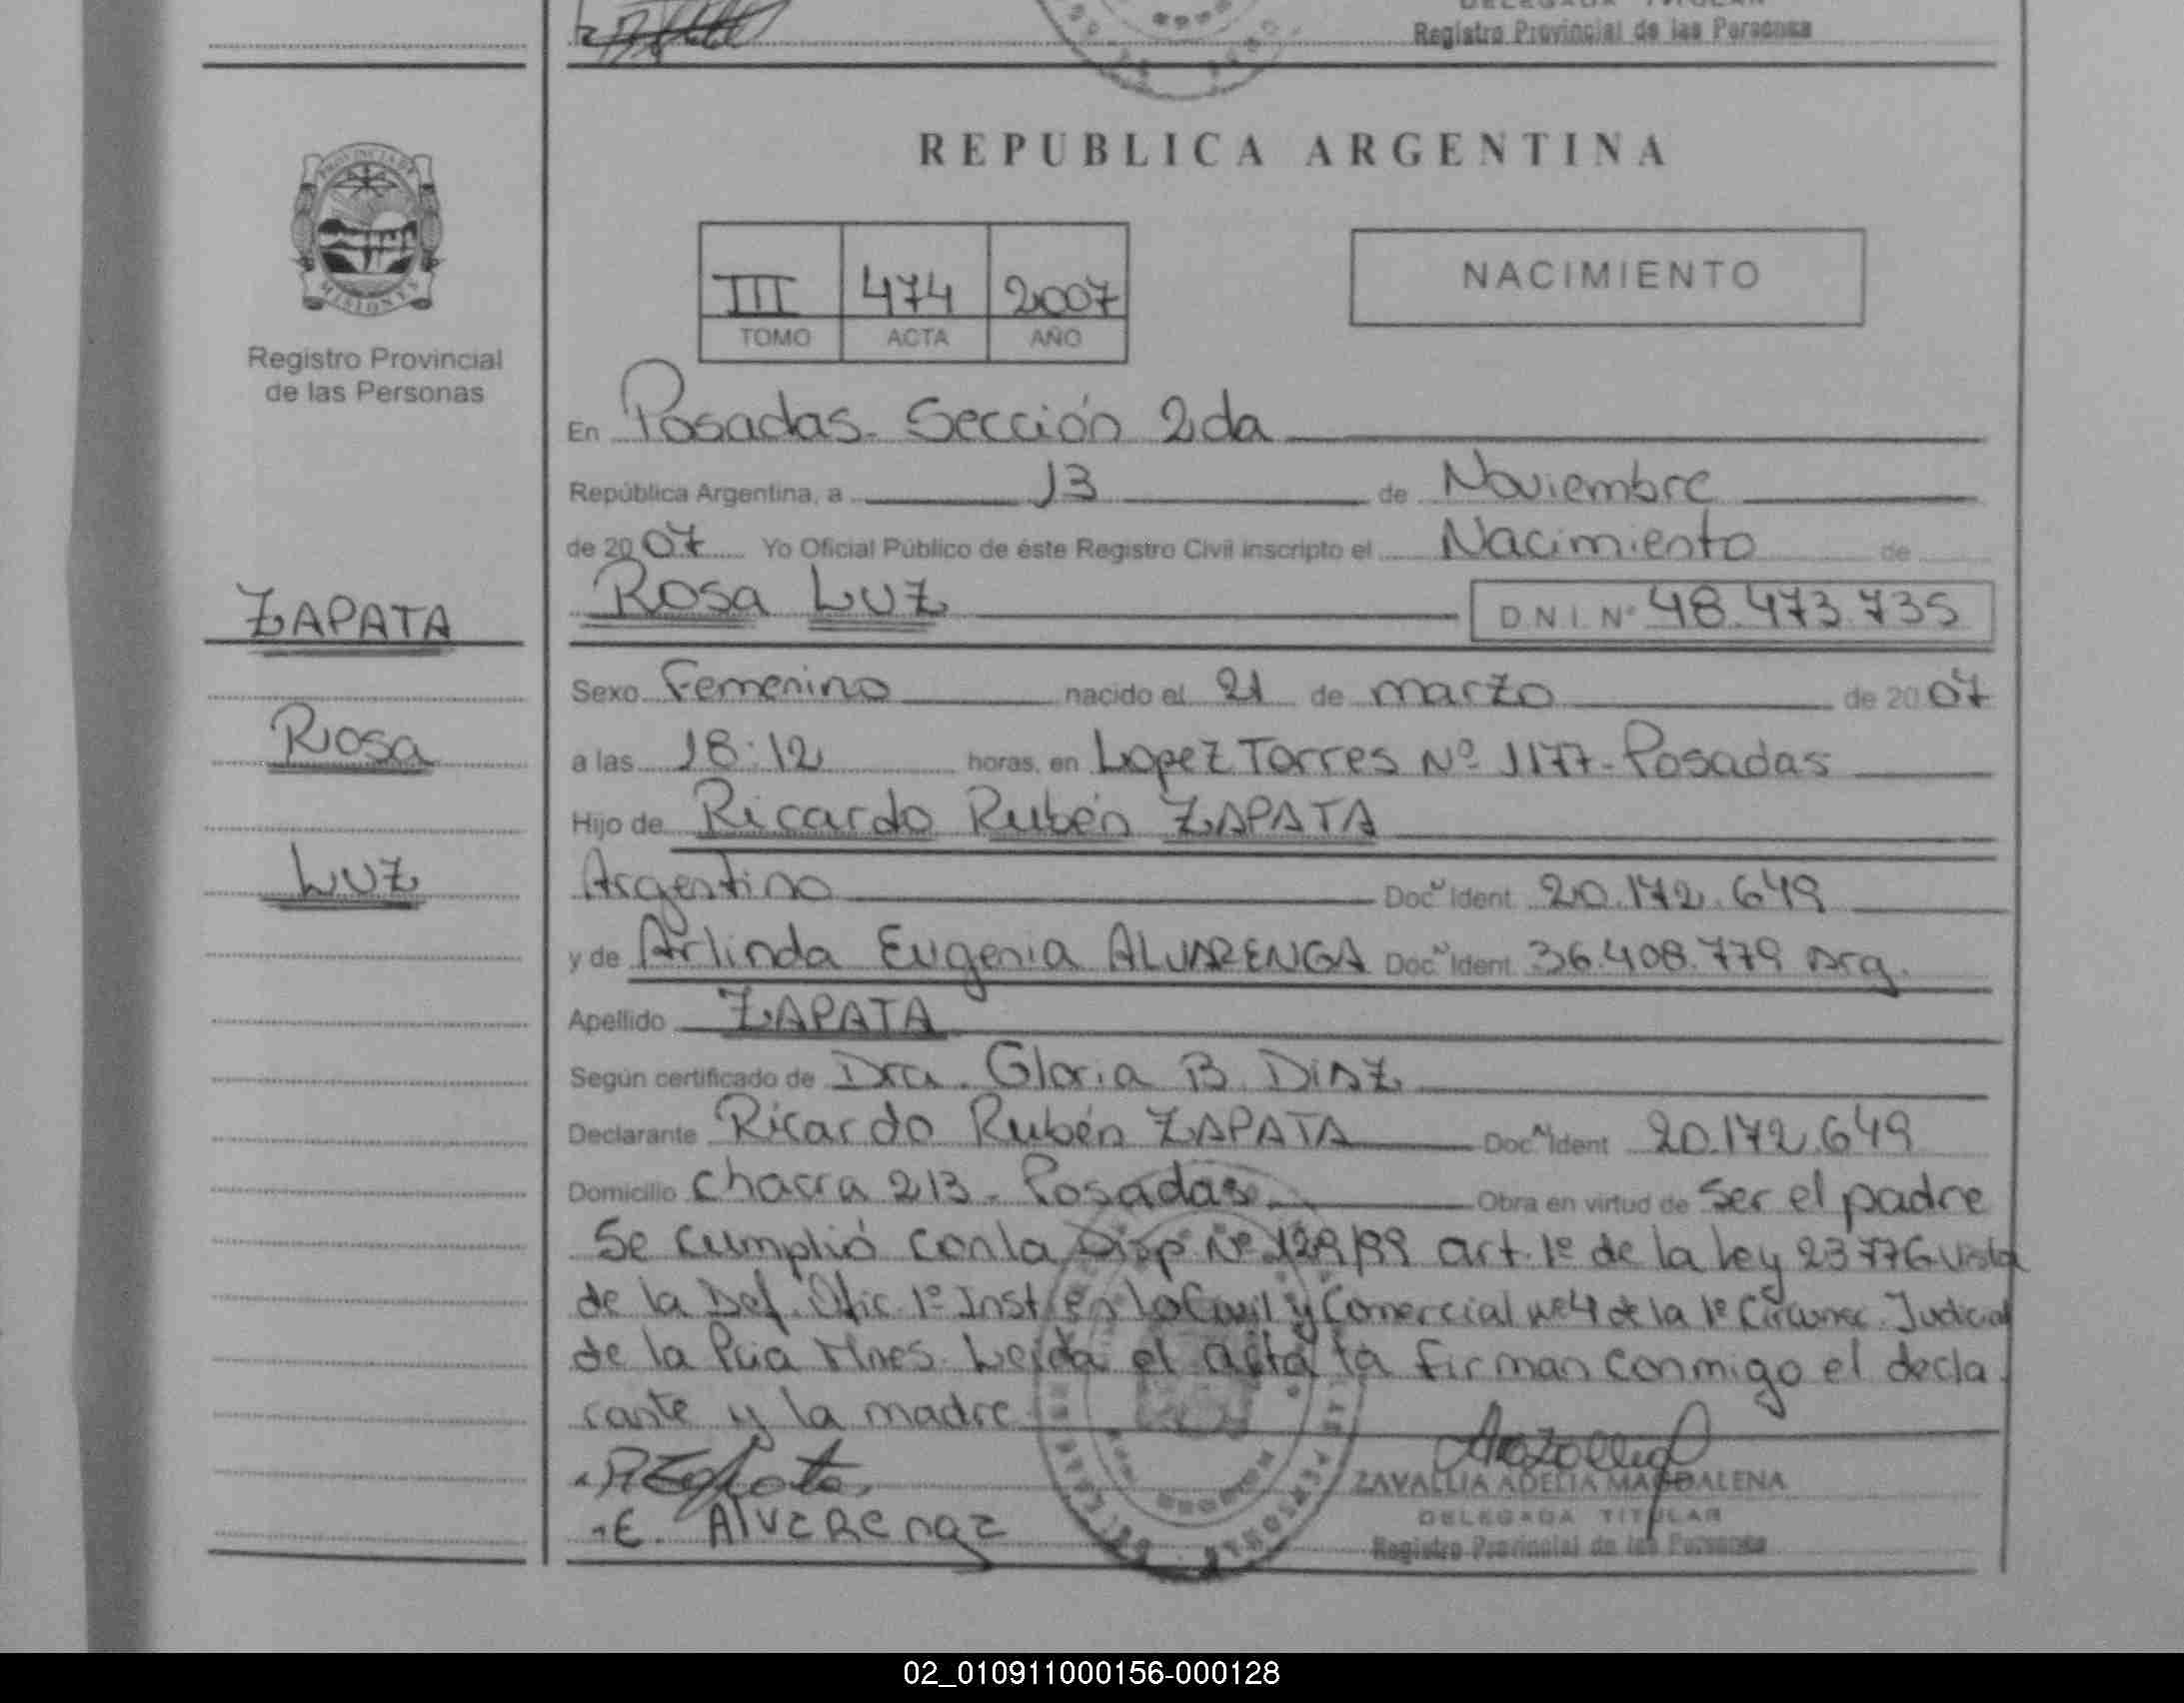 Registro Provincial de las Personas
REPUBLICA ARGENTINA
PROVINCIA DE
MISIONES
Registro Provincial
de las Personas
III 474 2007
TOMO ACTA AÑO
NACIMIENTO
En Posadas - Sección 2da
República Argentina, a 13 de Noviembre
de 2007 Yo Oficial Público de éste Registro Civil inscripto el Nacimiento de
ZAPATA
Rosa Luz D.N.I. Nº 48.473.735
Sexo Femenino nacido el 21 de marzo de 2007
Rosa
a las 18:12 horas, en Lopez Torres Nº 1177 - Posadas
Hijo de Ricardo Rubén ZAPATA
Luz
Argentino Doc. Ident. 20.172.649
y de Arlinda Eugenia ALVARENGA Doc. Ident. 36.408.779 Arg.
Apellido ZAPATA
Según certificado de Dra. Gloria B. DIAZ
Declarante Ricardo Rubén ZAPATA Doc. Ident 20.172.649
Domicilio Chacra 213 - Posadas Obra en virtud de Ser el padre
Se cumplió con la Disp Nº 129/99 art. 1º de la Ley 23776 vista
de la Def. Ofic. 1º Inst en lo Civil y Comercial Nº 4 de la 1º Circunsc. Judicial
de la Pcia Mnes. Leída el acta la firman conmigo el decla
rante y la madre
RZapata
E. Alvarenga
ZAVALLIA ADELIA MAGDALENA
DELEGADA TITULAR
Registro Provincial de las Personas
02_010911000156-000128